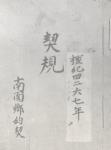 檀紀四二六七年
契規
南閣鄕約契